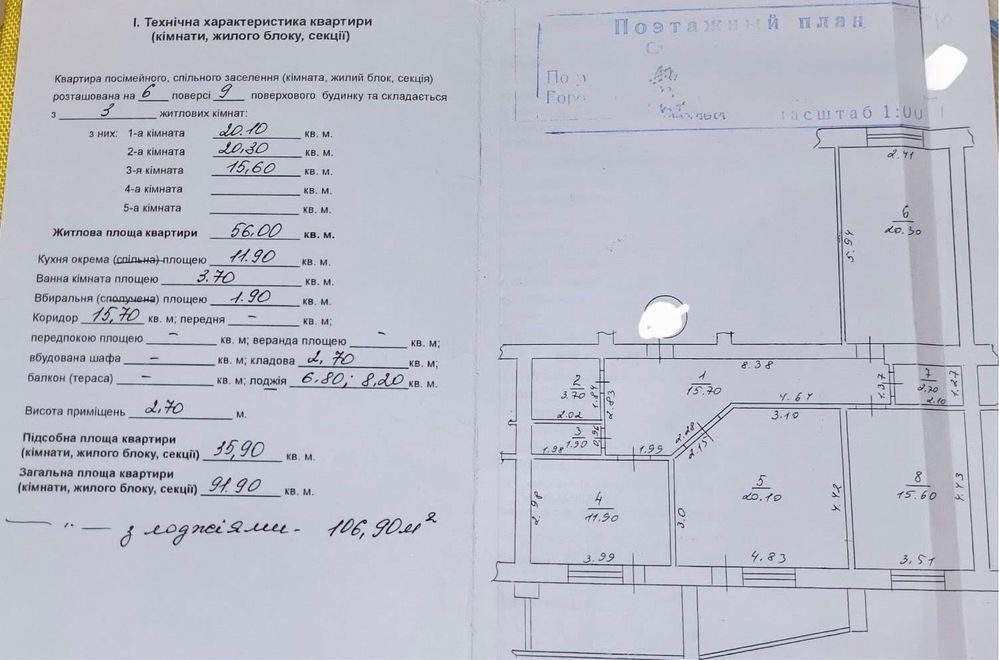 I. Технічна характеристика квартири
(кімнати, жилого блоку, секції)
Квартира посімейного, спільного заселення (кімната, жилий блок, секція)
розташована на 6 поверсі 9 поверхового будинку та складається
з 3 житлових кімнат:
з них: 1-а кімната 20.10 кв. м.
2-а кімната 20,30 кв. м.
3-я кімната 15,60 кв. м.
4-а кімната кв. м.
5-а кімната кв. м.
Житлова площа квартири 56,00 кв. м.
Кухня окрема (спільна) площею 11.90 кв. м.
Ванна кімната площею 3.70 кв. м.
Вбиральня (сполучена) площею 1.90 кв. м.
Коридор 15,70 кв. м; передня – кв. м;
передпокою площею – кв. м; веранда площею – кв. м;
вбудована шафа – кв. м; кладова 2,70 кв. м;
балкон (тераса) – кв. м; лоджія 6.80; 8,20 кв. м.
Висота приміщень 2,70 м.
Підсобна площа квартири
(кімнати, жилого блоку, секції) 35,90 кв. м.
Загальна площа квартири
(кімнати, жилого блоку, секції) 91.90 кв. м.
— " — з лоджіями - 106,90 м²
Поэтажный план
По
Горо
масштаб 1:00
2.41
6
20.30
5.94
8.38
1
15.70
4.64
1.37
7
2.70
2.10
1.27
2
3.70
1.84
2.83
2.02
3
1.90
0.96
1.98
1.99
2.28
2.15
3.10
4
11.90
2.98
3.99
5
20.10
3.0
4.42
4.83
8
15.60
4.43
3.51